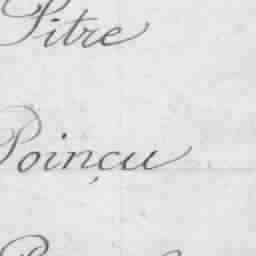 Pitre
Poinçu